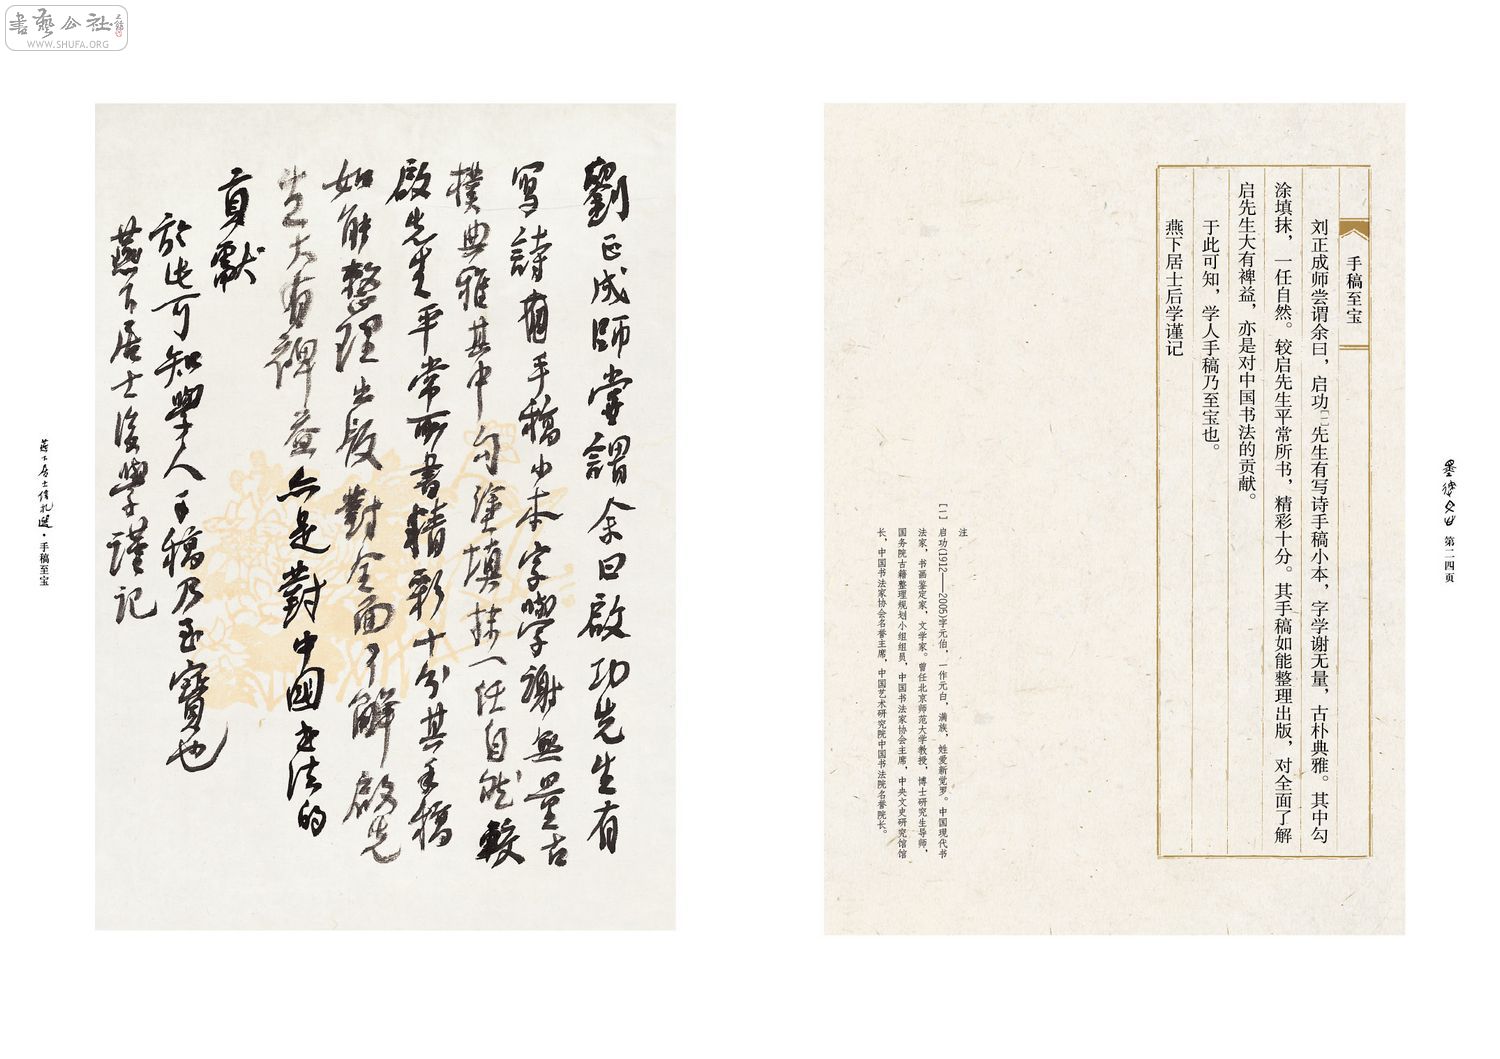 書藝公社
WWW.SHUFA.ORG
手稿至宝
刘正成师尝谓余曰，启功[一]先生有写诗手稿小本，字学谢无量，古朴典雅。其中勾
涂填抹，一任自然。较启先生平常所书，精彩十分。其手稿如能整理出版，对全面了解
启先生大有裨益，亦是对中国书法的贡献。
于此可知，学人手稿乃至宝也。
燕下居士后学谨记
注
[一] 启功(1912——2005)字元伯，一作元白，满族，姓爱新觉罗。中国现代书
法家，书画鉴定家，文学家。曾任北京师范大学教授，博士研究生导师，
国务院古籍整理规划小组组员，中国书法家协会主席，中央文史研究馆馆
长，中国书法家协会名誉主席，中国艺术研究院中国书法院名誉院长。
第二四页
劉正成師嘗謂余曰啟功先生有
写詩手稿小本字學謝無量古
樸典雅其中勾塗填抹一任自然較
啟先生平常所書精彩十分其手稿
如能整理出版對全面了解啟先
生大有裨益亦是對中國書法的
貢獻
於此可知學人手稿乃至寶也
燕下居士後學謹記
燕下居士信札選·手稿至宝